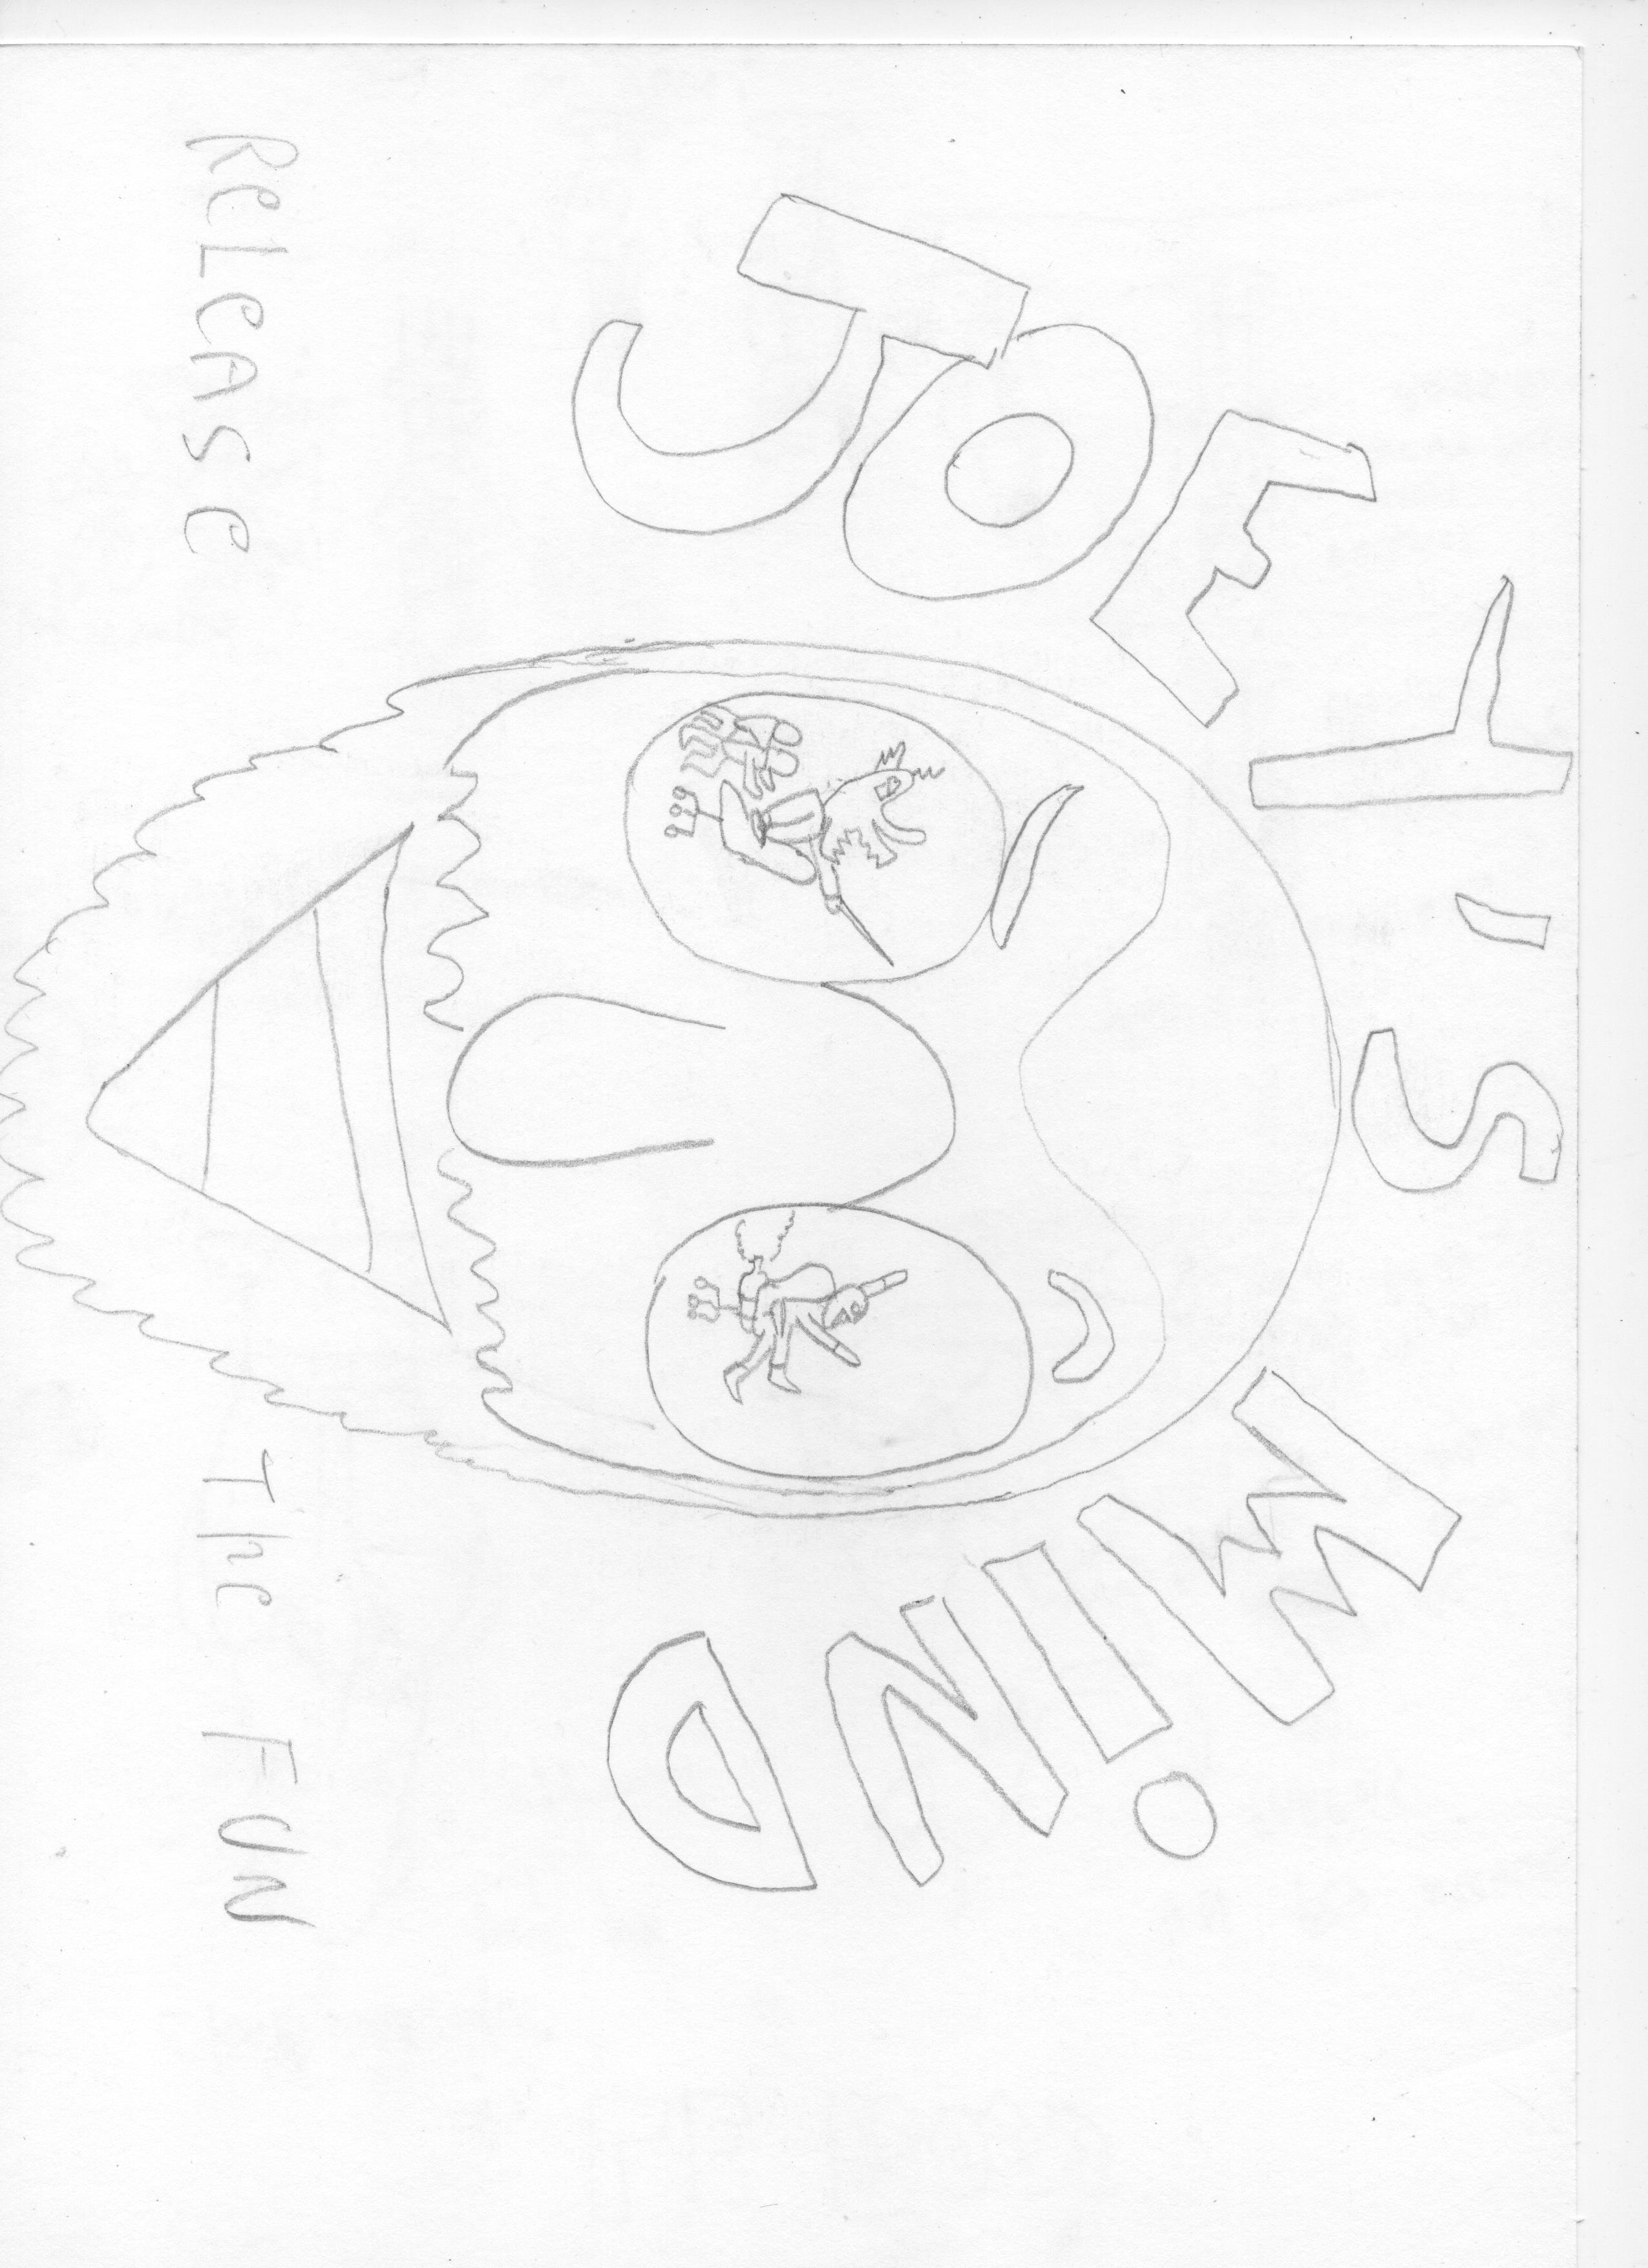 JOEY'S MiND
ReLeASe The FUN